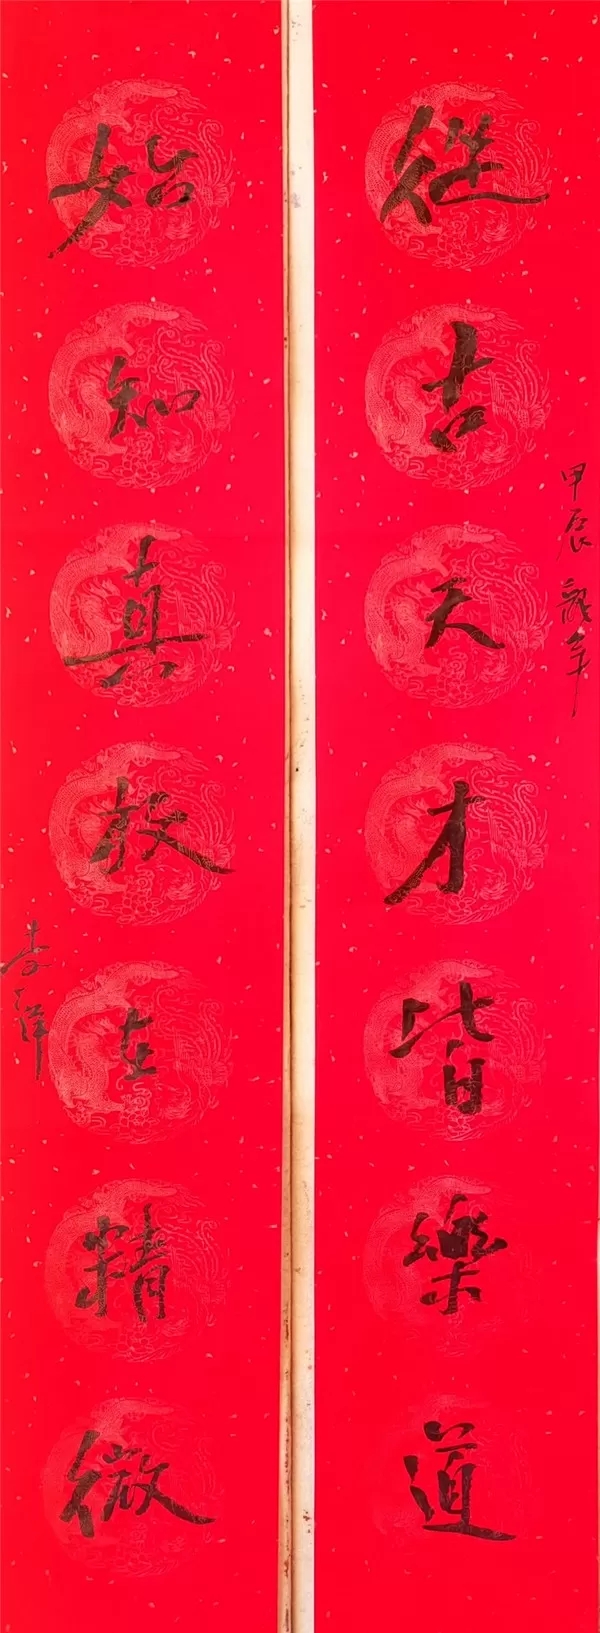 甲辰龍年
從古天才皆樂道
始知真放在精微